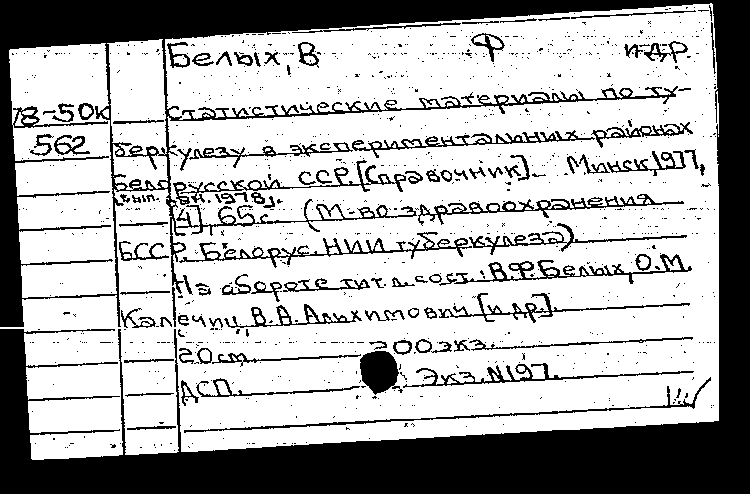 Белых, В Ф и др.
78-50к Статистические материалы по ту-
562 беркулезу в экспериментальных районах
Белорусской ССР. [Справочник]. Минск, 1977,
[вып. 1978].
[4], 65с. (М-во здравоохранения
БССР. Белорус. НИИ туберкулеза).
На обороте тит. л. сост.: В.Ф. Белых, О.М.
Калечиц, В.В. Альхимович [и др.].
20см. 200экз.
ДСП. Экз. N197.